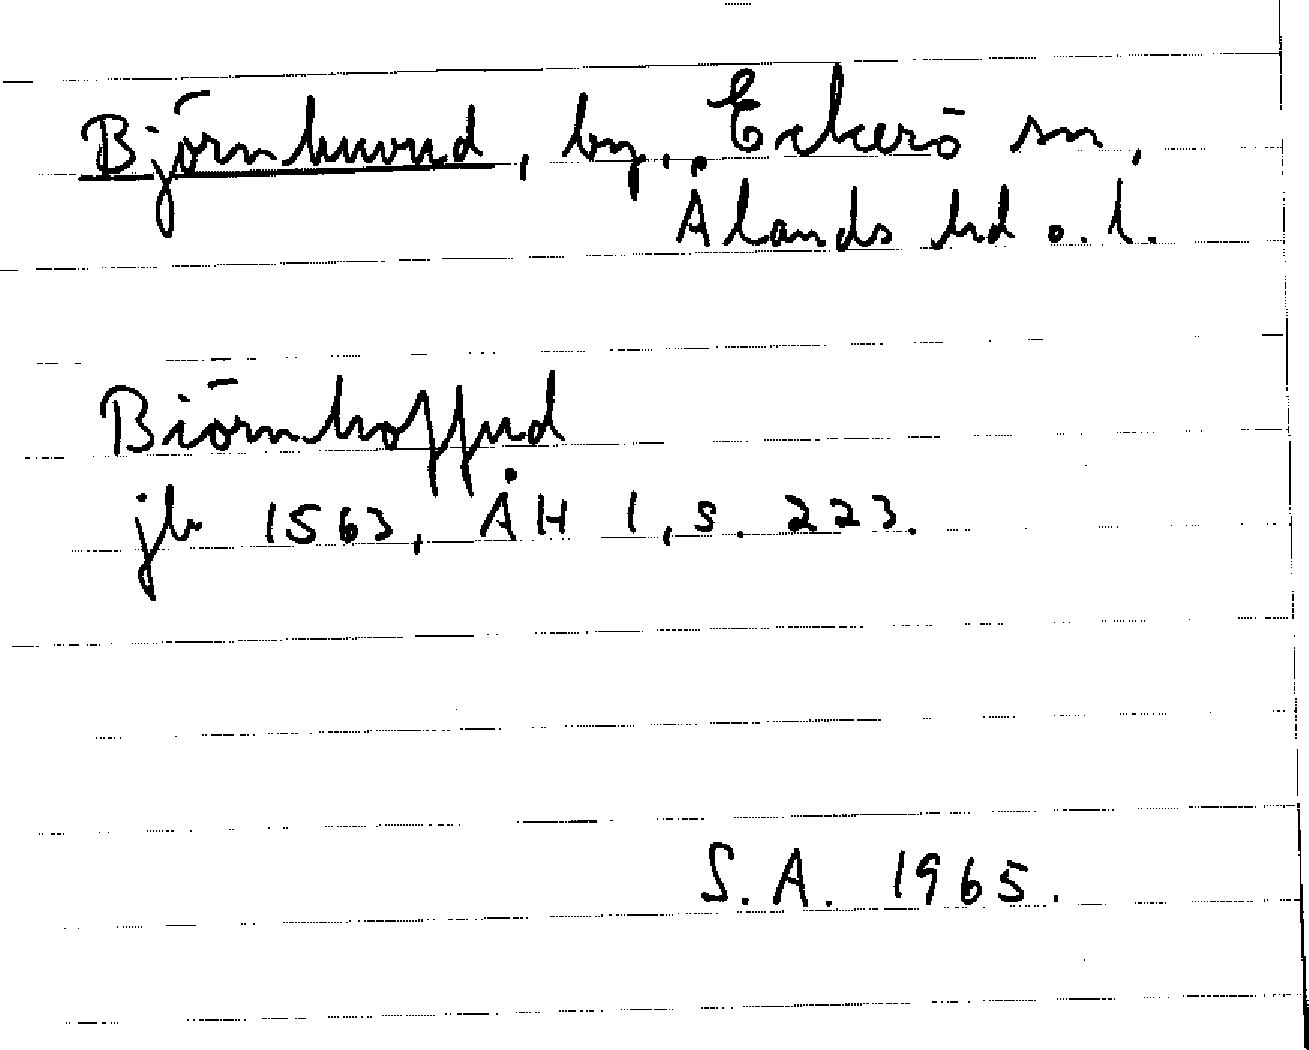 Björnhuvud, by, Eckerö sn,
Ålands hd o. l.
Biörnhoffud
jb 1563, ÅH 1, s. 223.
S.A. 1965.